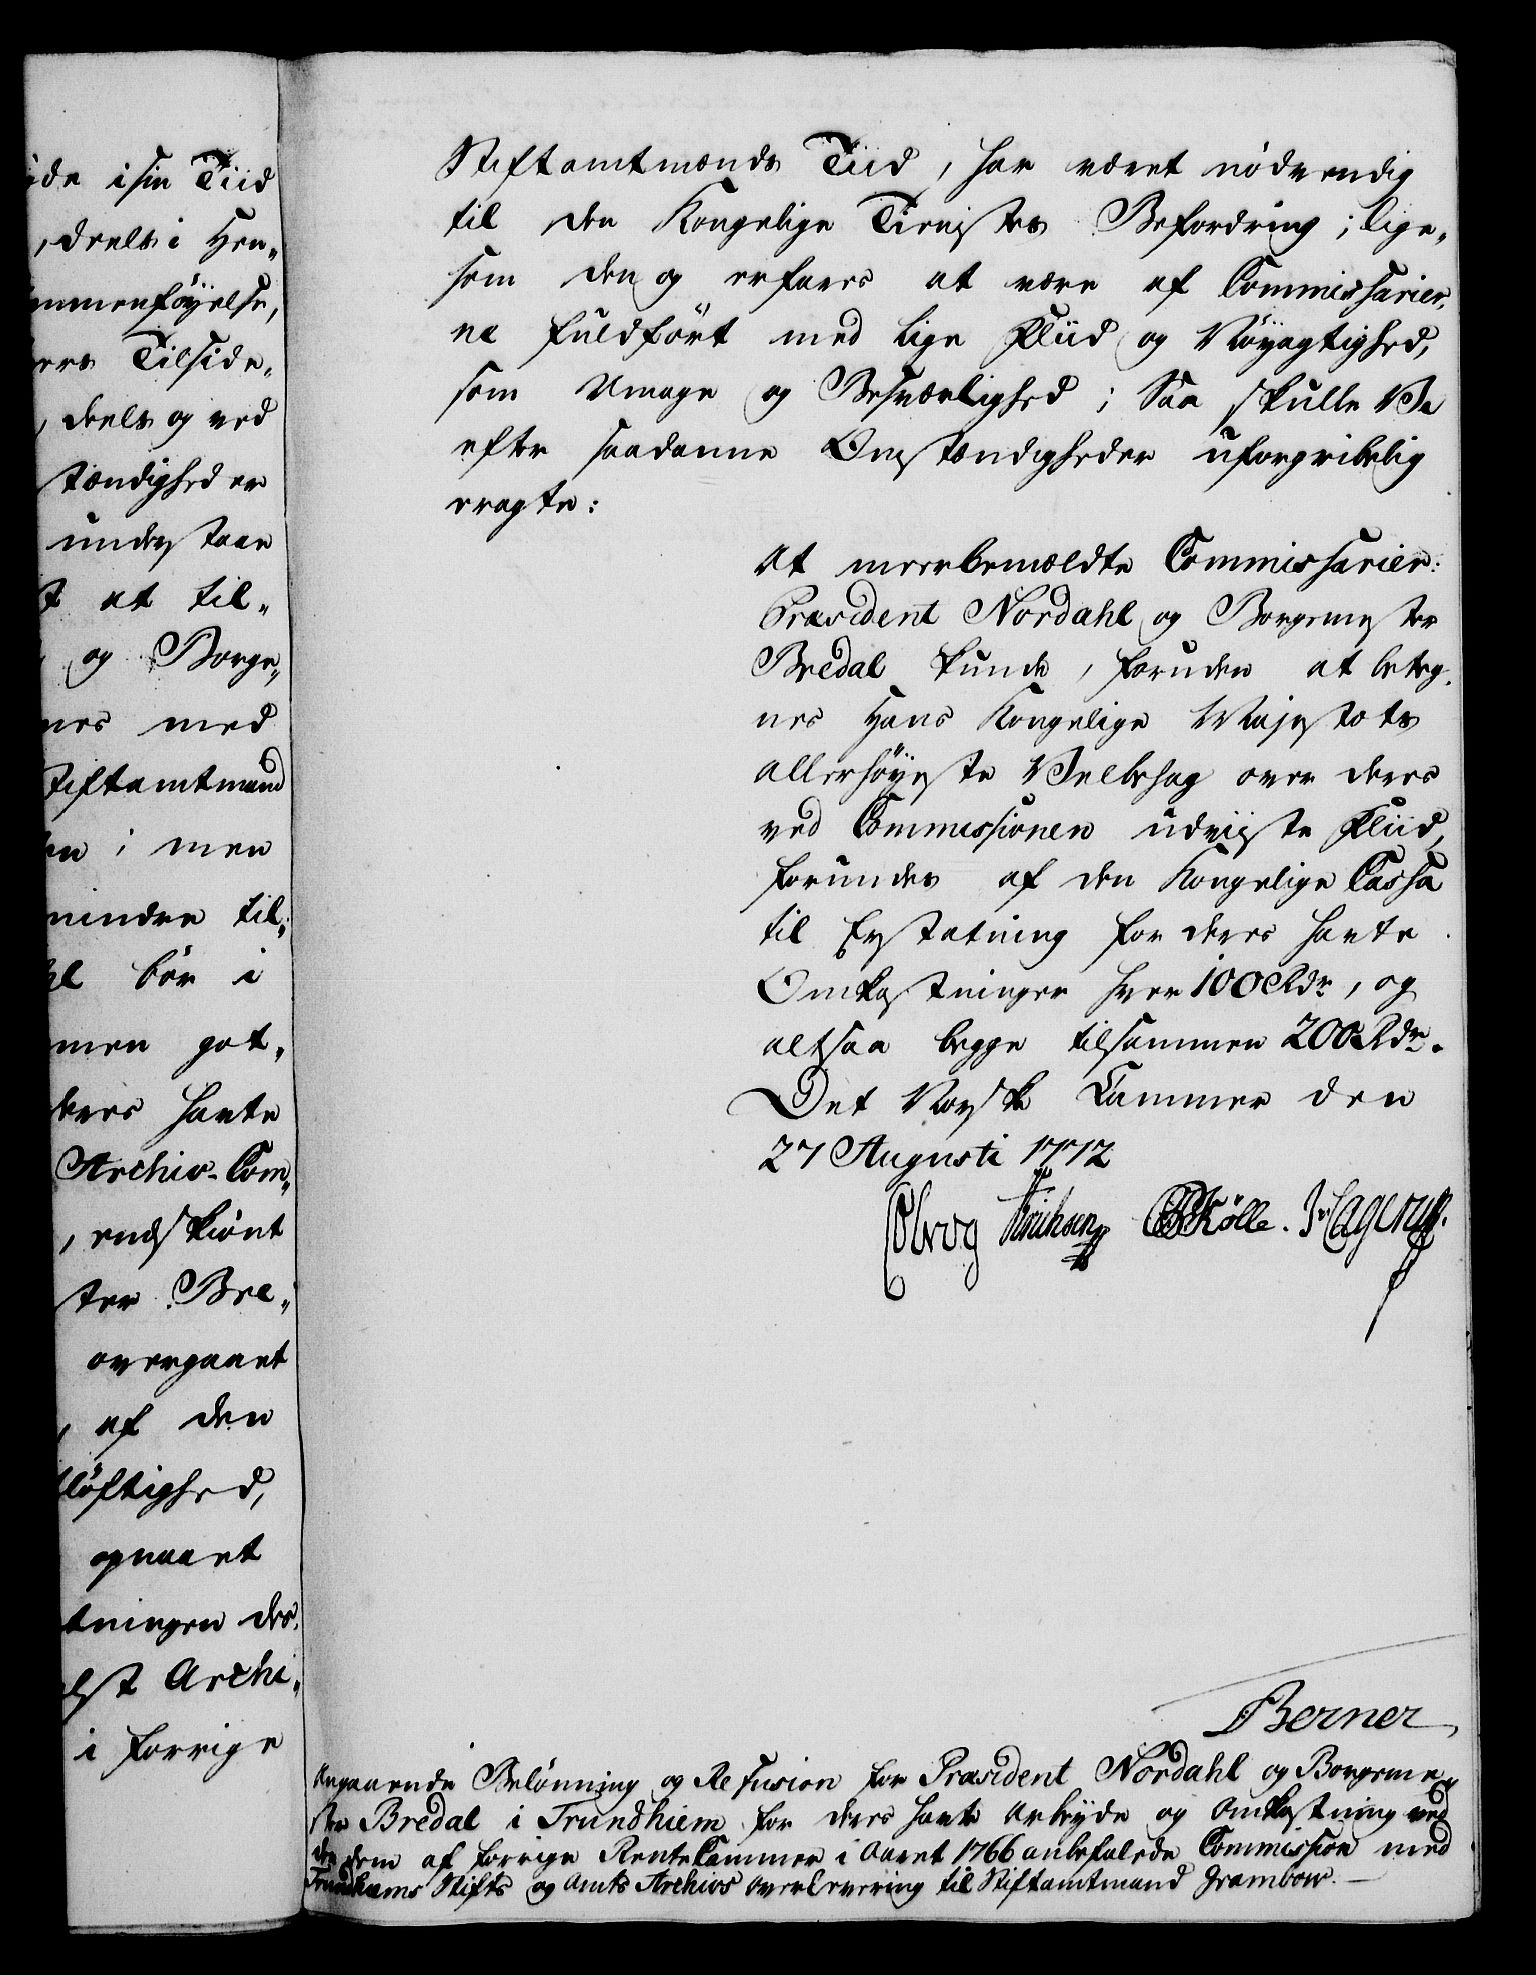 de i sin Tiid
, deels i Hen„
mmenføyelse,
ers Tilside„
, deels og ved
stændighed er
understaae
t at til„
og Borge„
nes med
Stiftamtmand
en i men
mindre til„
hl bør i
men got„
deres havte
Archiv-Com„
, endskiønt
ster Bre„
overgaaet
, af den
tløftighed,
opnaaet
tningen der„
elst Archi„
i forrige
Stiftamtmænds Tiid, har været nødvendig
til den Kongelige Tienestes Befordring; lige„
som den og erfares at være af Commissarier„
ne fuldført med lige Fliid og Nøyagtighed,
som Umage og Besværlighed; Saa skulle Ve
efter saadanne Omstændigheder uforgribelig
eragte:
At meerbemældte Commissarier:
Præsident Nordahl og Borgemester
Bredal kunde, foruden at beteg„
nes Hans Kongelige Majestæts
allerhøyeste Velbehag over deres
ved Commissionen udviiste Fliid,
forundes af den Kongelige Cassa
til Erstatning for deres havte
Omkostninger hver 100 Rdr, og
altsaa begge tilsammen 200 Rdr.
Det Norske Kammer den
27 Augusti 1772
Erichsen Kølle. J: Hagerup.
Berner
Angaaende Belønning og Refusion for Præsident Nordahl og Borgeme„
ster Bredal i Trundhiem for deres havte Arbeyde og Omkostning ved
den dem af forrige RenteKammer i Aaret 1766 anbefalede Commission med
Trundhiems Stifts og Amts Archivs Overlevering til Stiftamtmand Grambow.